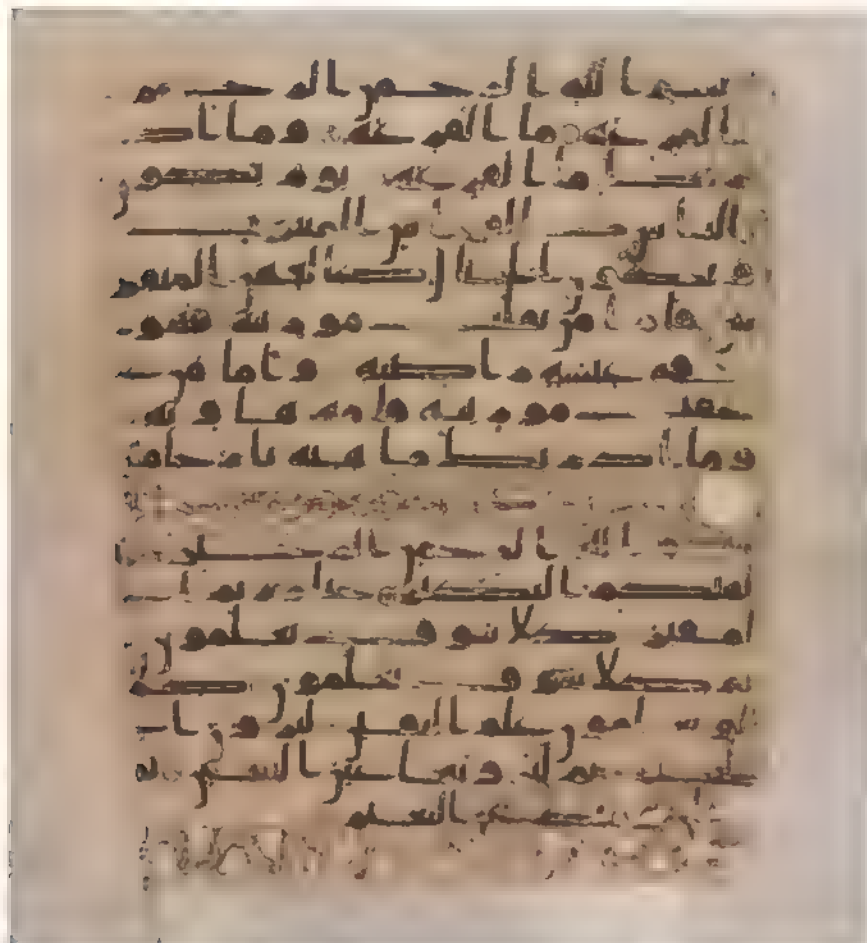 بسم الله الرحمن الرحيم
القرعه ما القرعه وما اد
ريك ما القرعه يوم يكون
الناس كالفراش المبثوث
وتكون الجبال كالعهن المنفو
ش فاما من ثقلت موزينه فهو
في عيشه راضيه واما من
خفت موزينه فامه هاويه
وما ادريك ما هيه نار حاميه
بسم الله الرحمن الرحيم
الهيكم التكاثر حتى زرتم ا
لمقبر كلا سوف تعلمون
ثم كلا سوف تعلمون كلا
لو تعلمون علم اليقين لترون ا
لجحيم ثم لترونها عين اليقين ثم
لتسلن يومئذ عن النعيم